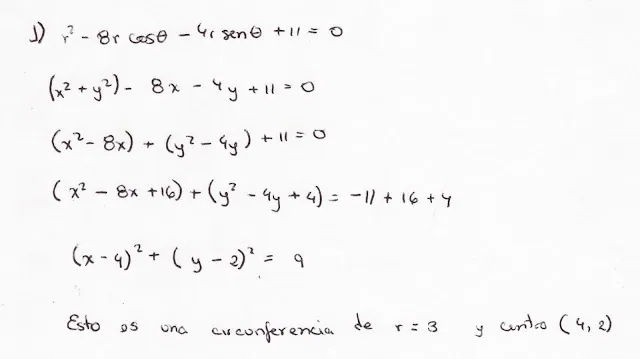 1) r² - 8r cosθ - 4r senθ + 11 = 0
(x² + y²) - 8x - 4y + 11 = 0
(x² - 8x) + (y² - 4y) + 11 = 0
(x² - 8x + 16) + (y² - 4y + 4) = -11 + 16 + 4
(x - 4)² + (y - 2)² = 9
Esto es una circonferencia de r = 3 y centro (4, 2)